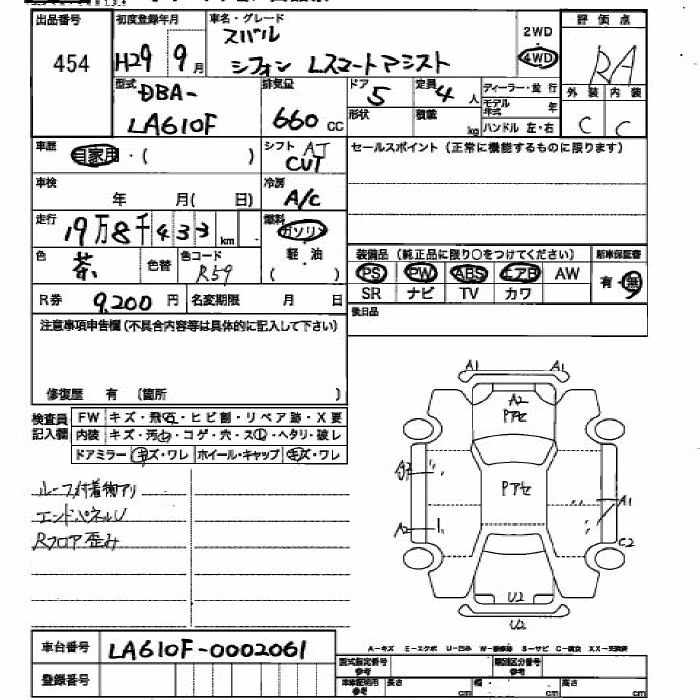 出品番号 初度登録年月 車名・グレード 評価点
454 H29 9月 スバル 2WD
シフォン Lスマートアシスト 4WD RA
型式 排気量 ドア 定員 ディーラー・並行 外装 内装
DBA- 5 4人 モデル年式 年
LA610F 660cc 形状 積載 kg ハンドル 左・右 C C
車歴 自家用・( ) シフト AT セールスポイント (正常に機能するものに限ります)
CVT
車検 年 月( 日) 冷房 A/C
走行 19万8千433km 燃料 ガソリン
軽・油
( )
色 茶 色替 色コード R59
装備品 (純正品に限り○をつけてください) 新車保証書
PS PW ABS エアB AW 有・無
SR ナビ TV カワ
R券 9,200円 名変期限 月 日
後日品
注意事項申告欄 (不具合内容等は具体的に記入して下さい)
修復歴 有 (箇所 )
検査員記入欄 FW キズ・飛石・ヒビ割・リペア跡・X要
内装 キズ・汚レ・コゲ・穴・スレ・ヘタリ・破レ
ドアミラー キズ・ワレ ホイール・キャップ キズ・ワレ
ルーフ付着物アリ
エンドパネルU
Rフロア歪み
A1 A1
A2
Pアセ
Pアセ
A1
A2
C2
U2
U2
車台番号 LA610F-0002061
登録番号
A-キズ E-エクボ U-凹み S-サビ C-腐食 XX-交換済
型式指定番号 参考 類別区分番号 参考
参考 長さ cm 幅 cm 高さ cm